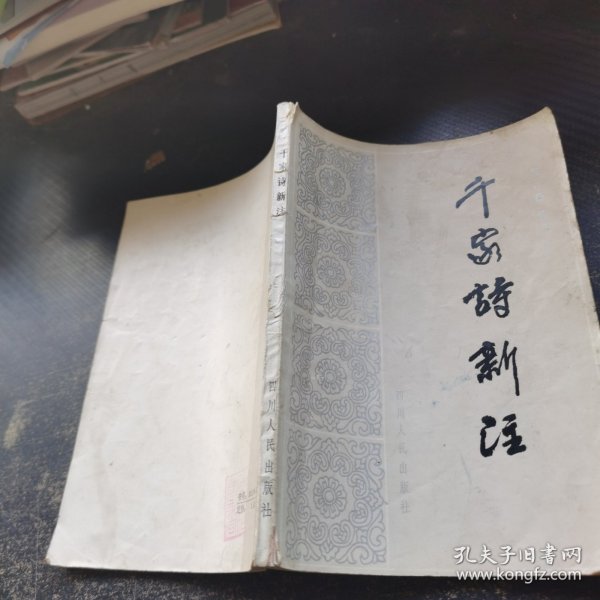 千家诗新注
四川人民出版社
千家詩新注
四川人民出版社
孔夫子旧書网
www.kongfz.com